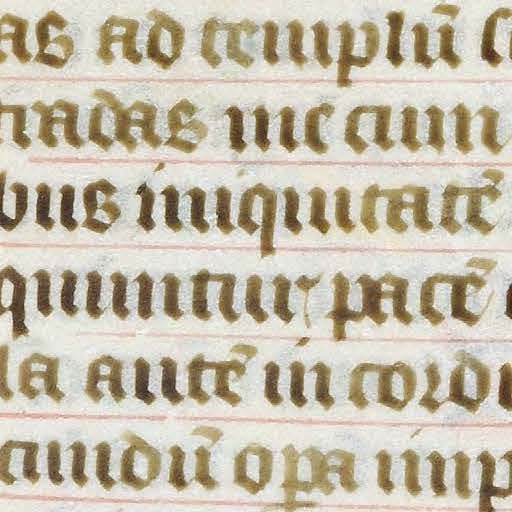 as ad templū
tradas me cum
bus iniquitatē
quuntur pacē
la autē in cordi
cundū opa